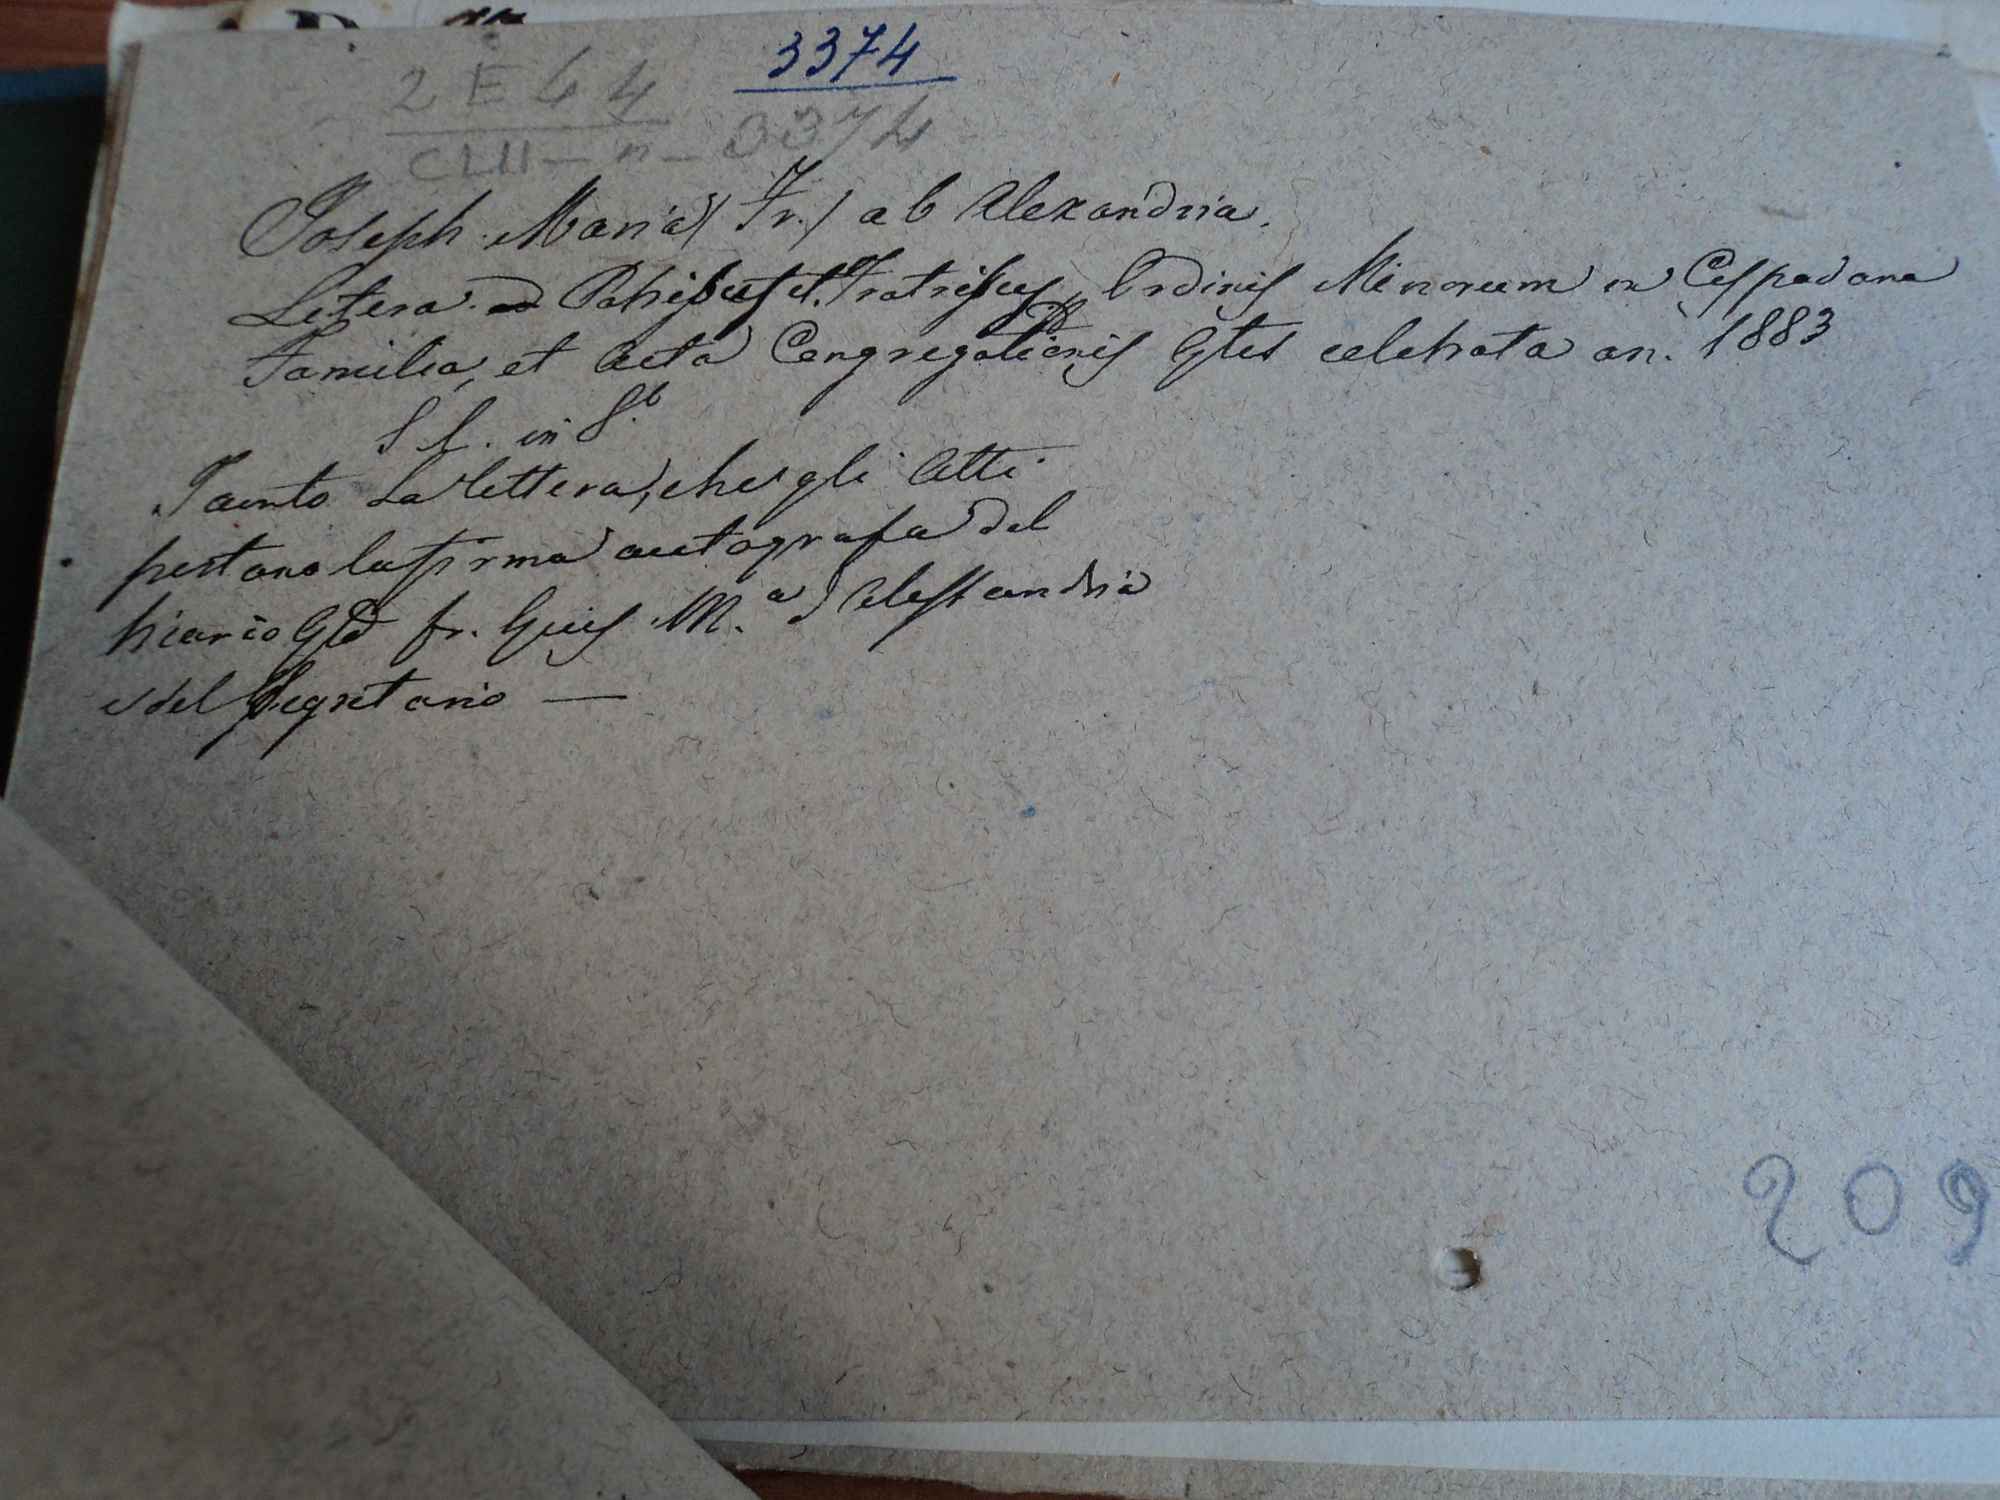 3374
2 E 44
CLII - n - 3374
Joseph Maria (Fr.) ab Alexandria.
Litera ad Patribus et Fratribus Ordinis Minorum in Cespadana
Familia, et Acta Congregationis Gtis celebrata an. 1883
S l. in 8.o
Tanto la lettera, che gli Atti
portano la firma autografa del
Gle fr. Gius M.a d'Alessandria
e del Segretario —
209